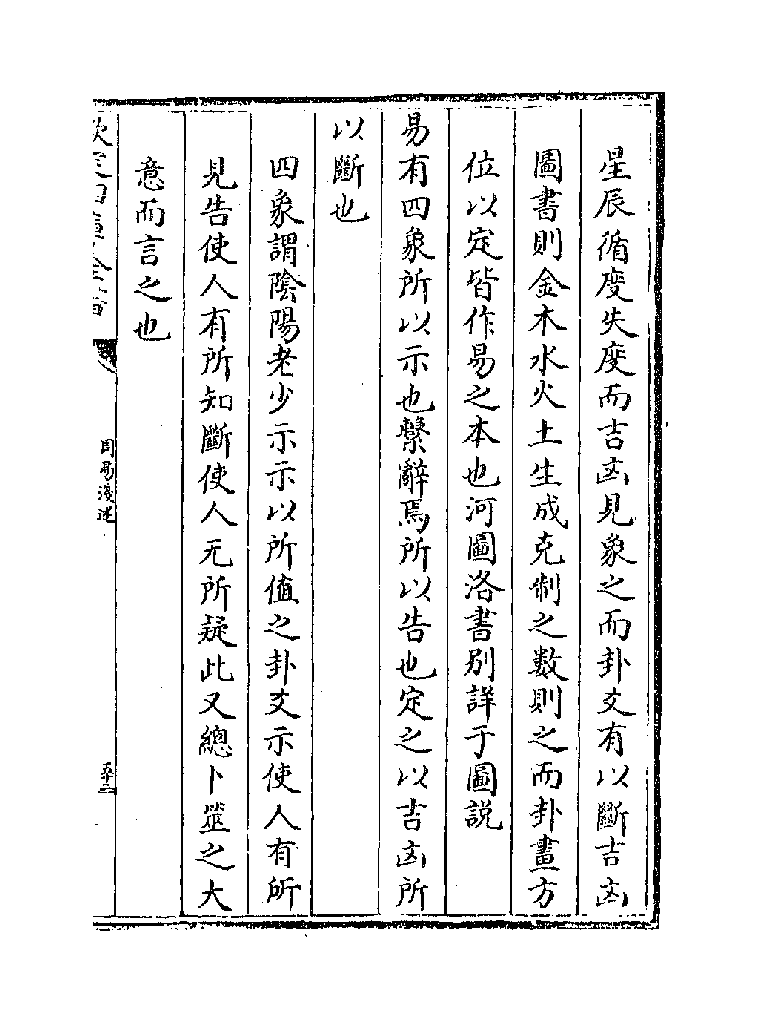 星辰循度失度而吉凶見象之而卦爻有以斷吉凶
圖書則金木水火土生成克制之數則之而卦畫方
位以定皆作易之本也河圖洛書别詳于圖説
易有四象所以示也繫辭焉所以告也定之以吉凶所
以斷也
四象謂陰陽老少示示以所值之卦爻示使人有所
見告使人有所知斷使人无所疑此又總卜筮之大
意而言之也
欽定四庫全書
周易淺述
五十二